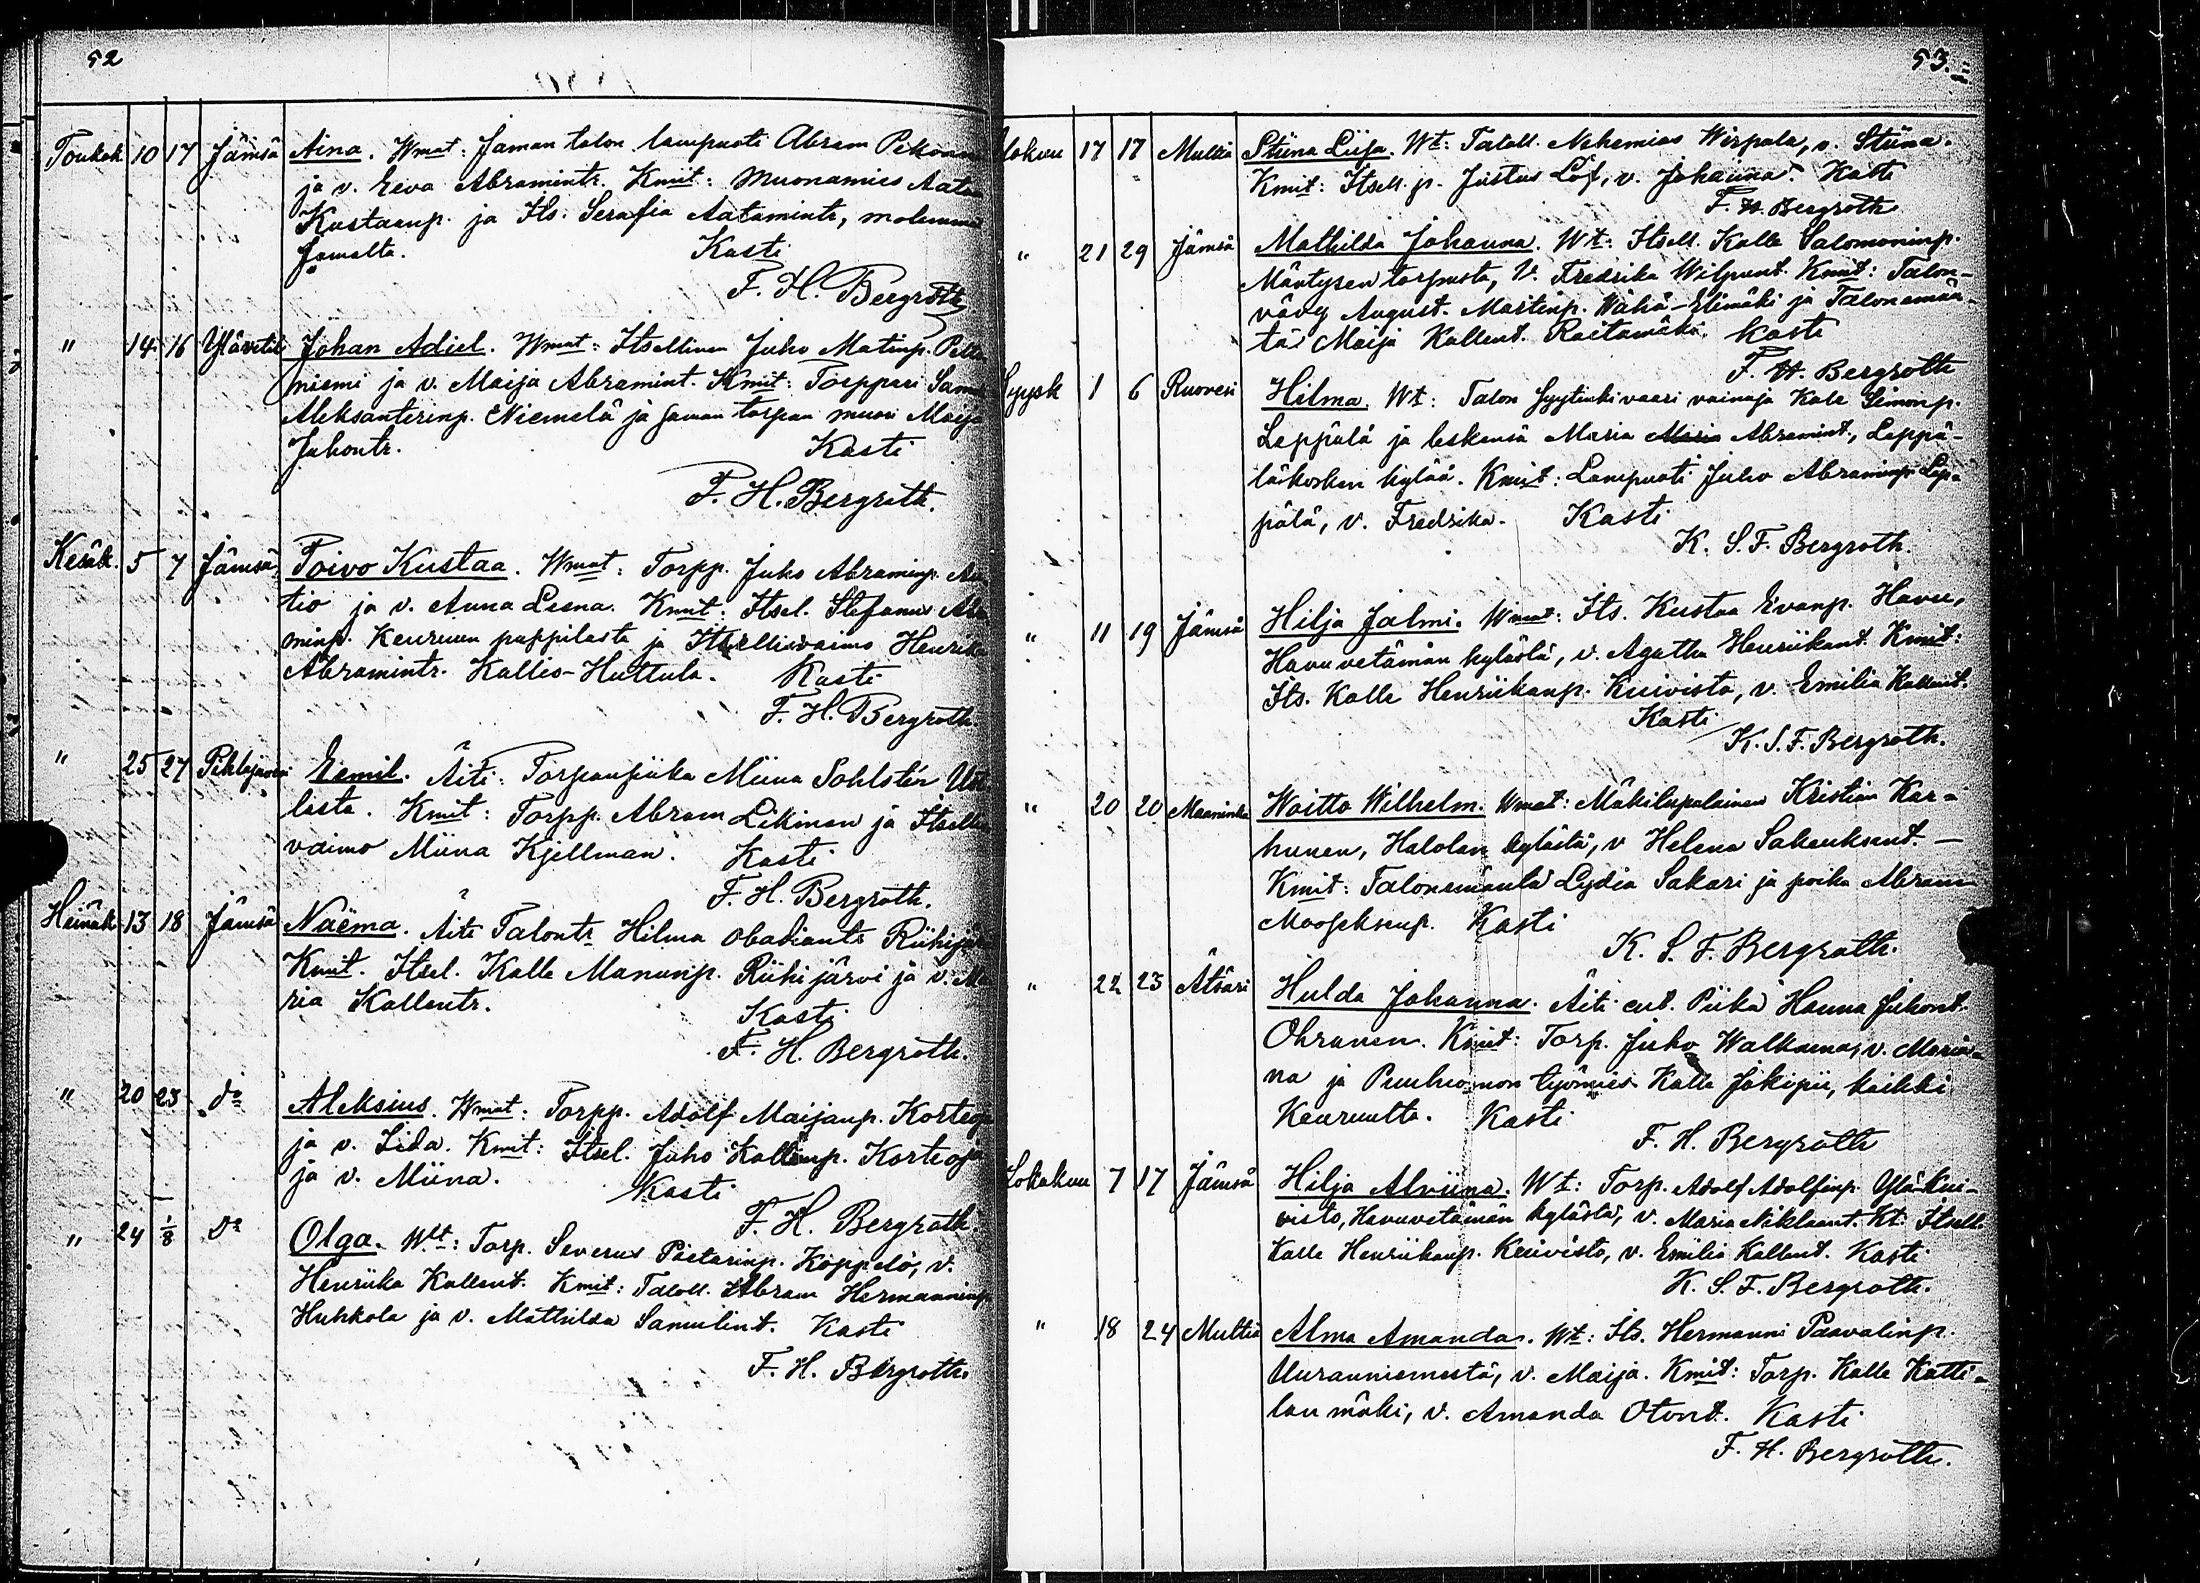 52
Toukok 10 17 Jämsä Aina. Wmat: Saman talon lampuoti Abram Pekonen
ja v. Eeva Abramintr. Kmit: Muonamies Aatam
Kustaanp. ja Its. Serafia Aatamintr, molemma
samalta. Kasti
F. H. Bergroth
" 14 16 Johan Adiel. Wmat: Itsellinen Juho Matinp. Pelto
niemi ja v. Maija Abramint. Kmit: Torppari Samu
Aleksanterinp. Niemelä ja saman torpan muori Maija
Juhontr. Kasti
F. H. Bergroth.
Kesäk. 5 7 Jämsä Toivo Kustaa. Wmat: Torpp. Juho Abraminp. Au
tio ja v. Anna Leena. Kmit. Itsel. Stefanus Abra
minp. Keuruun pappilasta ja Itsellisvaimo Henrika
Abramintr. Kallio-Huttula. Kasti
F. H. Bergroth.
" 25 27 Pihlajavesi Eemil. Äiti: Torpanpiika Miina Sohlstén
lasta. Kmit: Torpp. Abram Likinen ja Itsellis
vaimo Miina Kjellman. Kasti
F. H. Bergroth.
Heinäk 13 18 Jämsä Naëma. Äiti Talontr Hilma Obadiantr Riihijär
Kmit. Itsel. Kalle Manunp. Riihijärvi ja v. Ma
ria Kallentr. Kasti
F. H. Bergroth.
" 20 23 do Aleksius. Wmat: Torpp. Adolf Maijanp. Korteoja
ja v. Iida. Kmit: Itsel. Juho Kallenp. Korteoja
ja v. Miina. Kasti
F. H. Bergroth
" 24 1/8 do Olga. Wlt: Torp. Severus Pietarinp. Koppelo, v.
Henriika Kallent. Kmit: Taloll. Abram Hermanninp
Huhkola ja v. Mathilda Samulint. Kasti
F. H. Bergroth.
53.
lokuu 17 17 Multia Stiina Liisa. Wt: Taloll. Nehemias Wirpala, v. Stiina.
Kmit: Itsell. p. Justus Löf, v. Johanna. Kasti
F. H. Bergroth
" 21 29 Jämsä Mathilda Johanna. Wt: Itsell. Kalle Salomoninp.
Mäntysen torpasta, V. Fredrika Wilpunt. Kmit: Talon-
vävy August. Martinp. Wähä-Elimäki ja Talonemän-
tä Maija Kallent. Raitamäki. Kasti
F. H. Bergroth
Syysk 1 6 Ruovesi Hilma. Wt: Talon Syytinkivaari vainaja Kale Simonp.
Leppälä ja leskensä Maria Maria Abramint., Leppä-
läkosken kylää. Kmit: Lampuoti Juho Abraminp. Lep-
pälä, v. Fredrika. Kasti
K. S. F. Bergroth.
" 11 19 Jämsä Hilja Jalmi. Wmat: Its. Kustaa Evanp. Havu,
Havuvetämän kylästä, v. Agatha Henriikant. Kmit:
Its. Kalle Henriikanp. Kuivisto, v. Emilia Kallent.
Kasti
K. S. F. Bergroth.
" 20 20 Maaninka Woitto Wilhelm. Wmat: Mäkitupalainen Kristian Kar-
hunen, Halolan kylästä, v Helena Sakeuksent. —
Kmit: Talonemäntä Lydia Sakari ja poika Abram
Mooseksenp. Kasti
K. S. F. Bergroth.
" 22 23 Ätsäri Hulda Johanna. Äiti ent. Piika Hanna Juhont.
Ohranen. Kmit: Torp. Juho Walkama, v. Marian-
na ja Puuhuonon työmies Kalle Jokipii, kaikki
Keuruulta. Kasti
F. H. Bergroth
Lokakuu 7 17 Jämsä Hilja Alviina. Wt: Torp. Adolf Adolfinp. Ylä-Kui-
visto, Havuvetämän kylästä, v. Maria Niklaant. Kt: Itsell.
Kalle Henriikanp. Kuivisto, v. Emilia Kallent. Kasti
K. S. F. Bergroth.
" 18 24 Multia Alma Amanda. Wt: Its. Hermanni Paavalinp.
Uuranniemestä, v. Maija. Kmit: Torp. Kalle Katti-
lan mäki, v. Amanda Otont. Kasti
F. H. Bergroth.